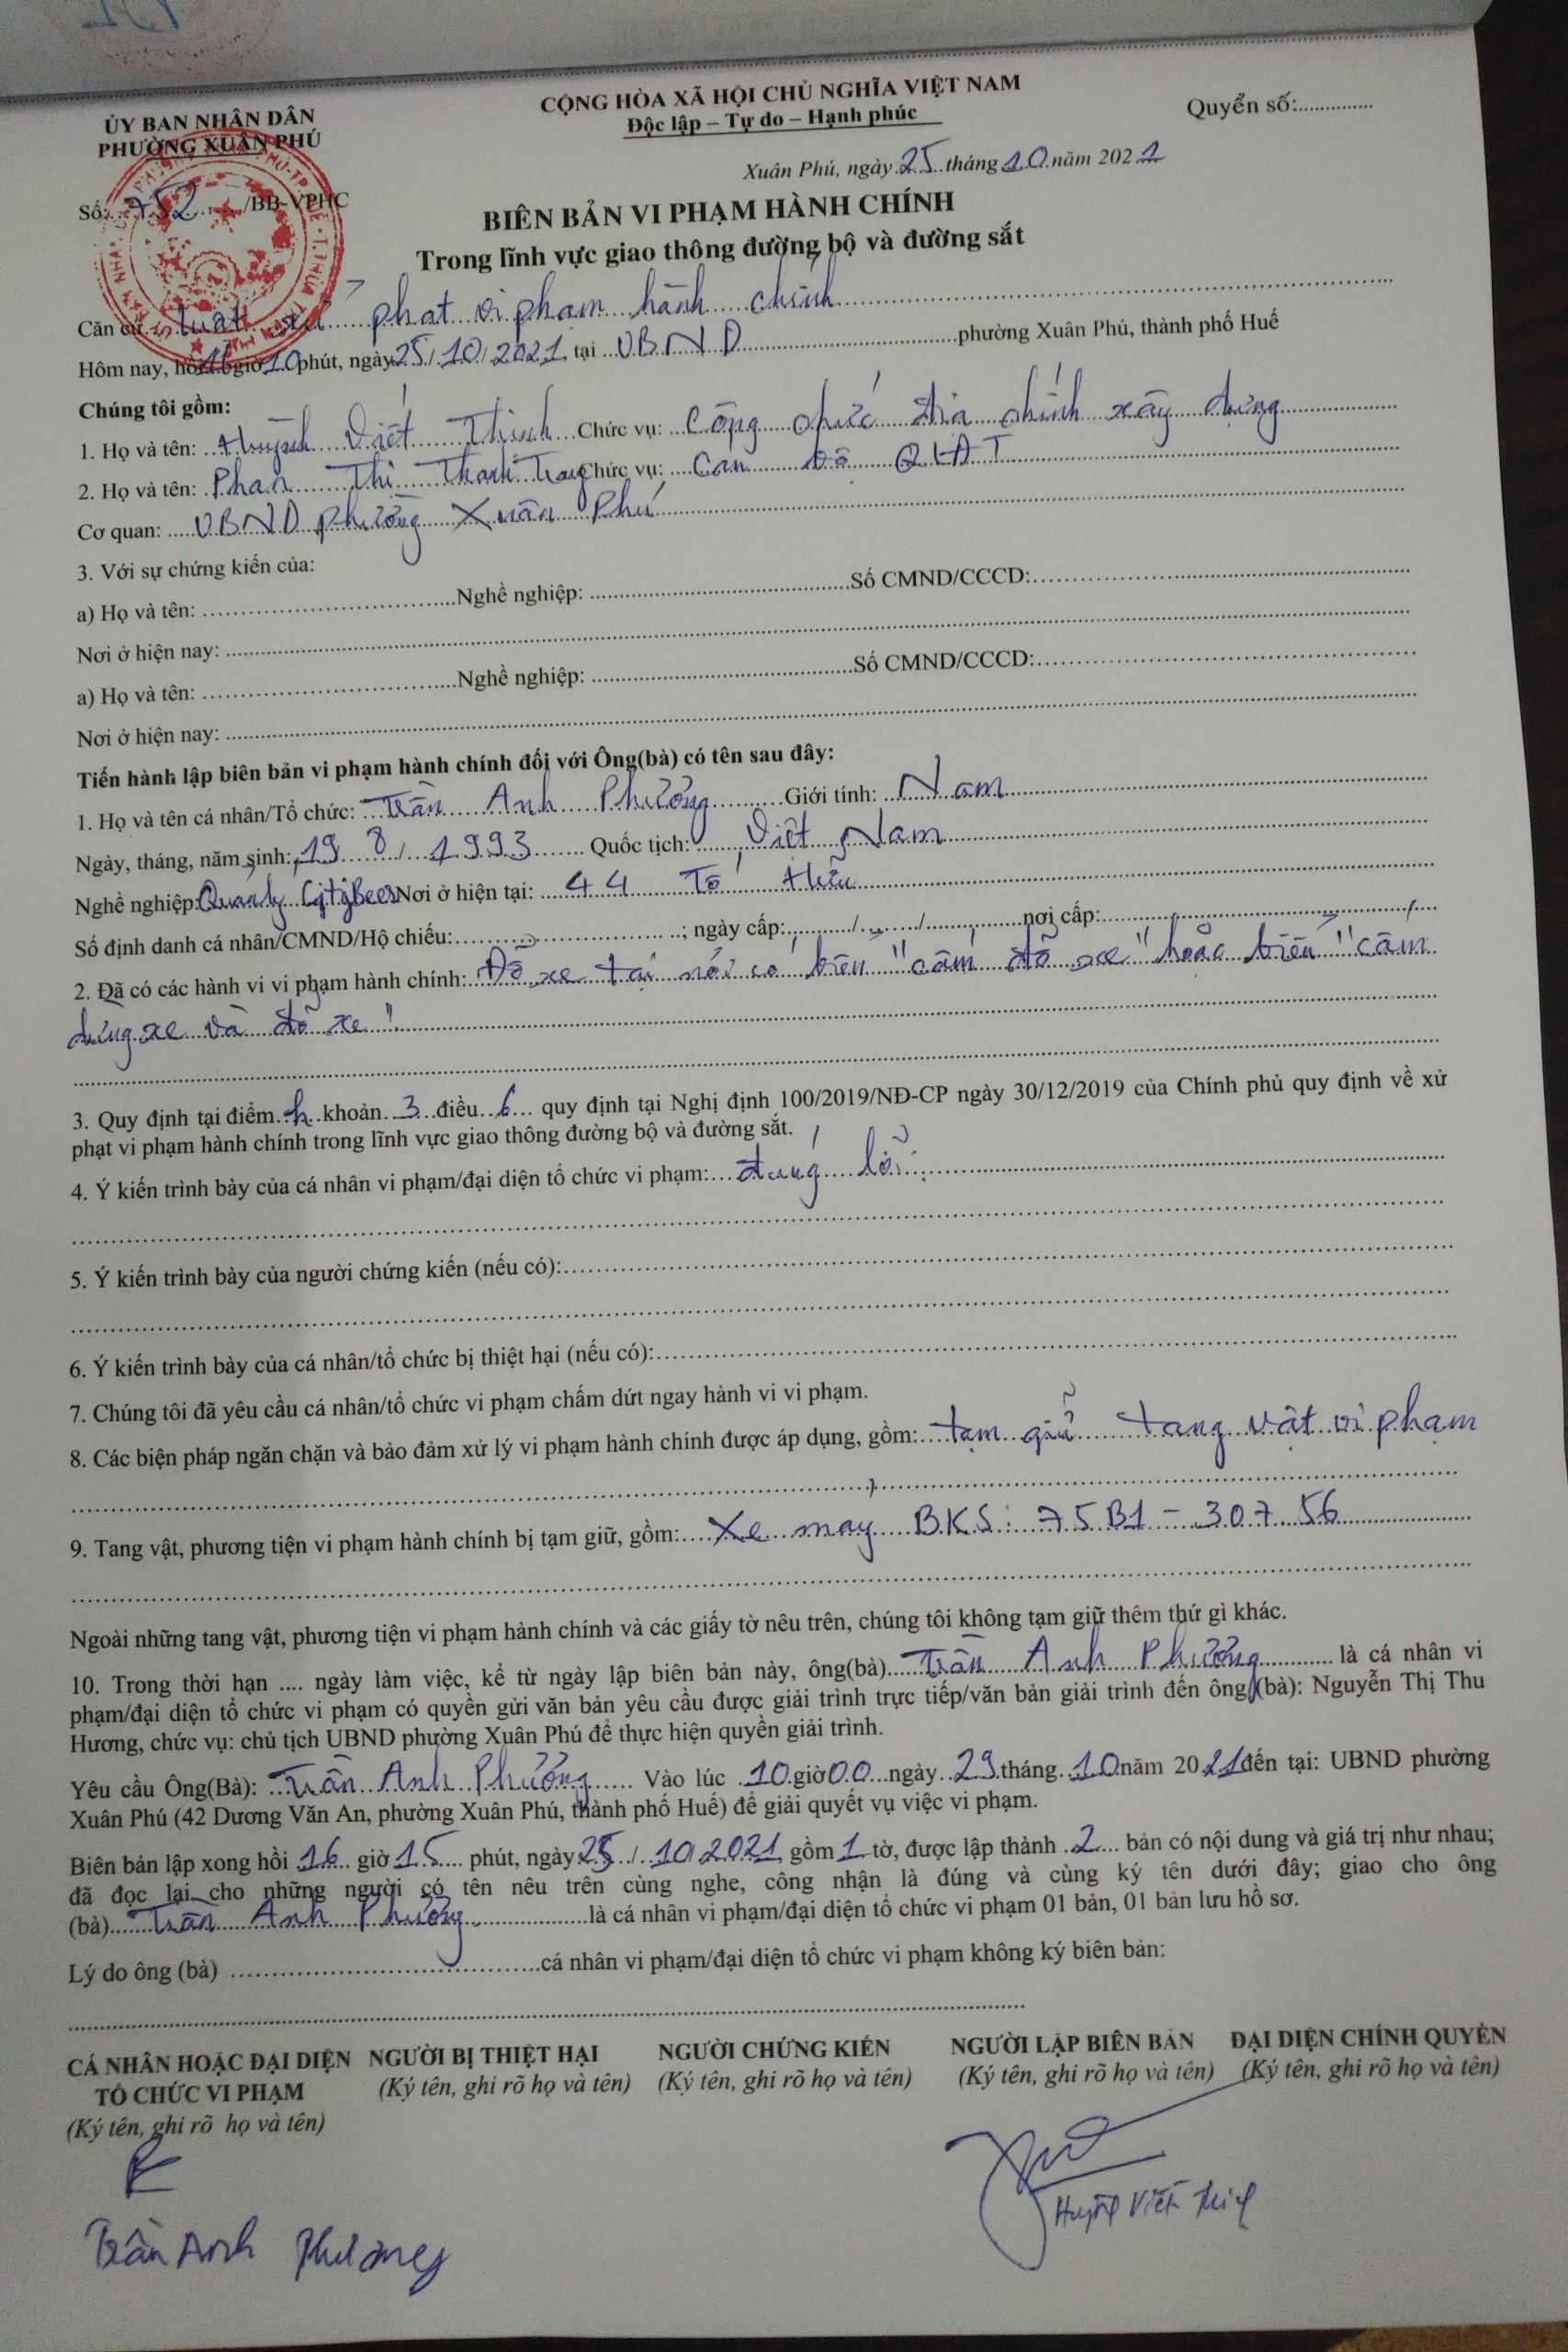 CỘNG HÒA XÃ HỘI CHỦ NGHĨA VIỆT NAM
Độc lập – Tự do – Hạnh phúc
Quyển số:..............
ỦY BAN NHÂN DÂN
PHƯỜNG XUÂN PHÚ
Số: 752 /BB-VPHC
Xuân Phú, ngày 25 tháng 10 năm 2021
BIÊN BẢN VI PHẠM HÀNH CHÍNH
Trong lĩnh vực giao thông đường bộ và đường sắt
Căn cứ Luật xử phạt vi phạm hành chính
Hôm nay, hồi 16 giờ 10 phút, ngày 25/10/2021 tại UBND phường Xuân Phú, thành phố Huế
Chúng tôi gồm:
1. Họ và tên: Huỳnh Viết Thịnh Chức vụ: Công chức địa chính xây dựng
2. Họ và tên: Phan Thị Thanh Trang Chức vụ: Cán bộ QLĐT
Cơ quan: UBND phường Xuân Phú
3. Với sự chứng kiến của:
a) Họ và tên: ........ Nghề nghiệp: ........ Số CMND/CCCD: ........
Nơi ở hiện nay: ........
a) Họ và tên: ........ Nghề nghiệp: ........ Số CMND/CCCD: ........
Nơi ở hiện nay: ........
Tiến hành lập biên bản vi phạm hành chính đối với Ông(bà) có tên sau đây:
1. Họ và tên cá nhân/Tổ chức: Trần Anh Phương Giới tính: Nam
Ngày, tháng, năm sinh: 19 8 / 1993 Quốc tịch: Việt Nam
Nghề nghiệp: Quản lý CityBees Nơi ở hiện tại: 44 Tố Hữu
Số định danh cá nhân/CMND/Hộ chiếu: ........; ngày cấp: ..../..../........ nơi cấp: ........
2. Đã có các hành vi vi phạm hành chính: Đỗ xe tại nơi có biển "cấm đỗ xe" hoặc biển "cấm
dừng xe và đỗ xe"
3. Quy định tại điểm h khoản 3 điều 6 quy định tại Nghị định 100/2019/NĐ-CP ngày 30/12/2019 của Chính phủ quy định về xử
phạt vi phạm hành chính trong lĩnh vực giao thông đường bộ và đường sắt.
4. Ý kiến trình bày của cá nhân vi phạm/đại diện tổ chức vi phạm: đúng lỗi
5. Ý kiến trình bày của người chứng kiến (nếu có): ........
6. Ý kiến trình bày của cá nhân/tổ chức bị thiệt hại (nếu có): ........
7. Chúng tôi đã yêu cầu cá nhân/tổ chức vi phạm chấm dứt ngay hành vi vi phạm.
8. Các biện pháp ngăn chặn và bảo đảm xử lý vi phạm hành chính được áp dụng, gồm: tạm giữ tang vật vi phạm
9. Tang vật, phương tiện vi phạm hành chính bị tạm giữ, gồm: Xe máy BKS: 75B1 – 307.56
Ngoài những tang vật, phương tiện vi phạm hành chính và các giấy tờ nêu trên, chúng tôi không tạm giữ thêm thứ gì khác.
10. Trong thời hạn .... ngày làm việc, kể từ ngày lập biên bản này, ông(bà) Trần Anh Phương là cá nhân vi
phạm/đại diện tổ chức vi phạm có quyền gửi văn bản yêu cầu được giải trình trực tiếp/văn bản giải trình đến ông/(bà): Nguyễn Thị Thu
Hương, chức vụ: chủ tịch UBND phường Xuân Phú để thực hiện quyền giải trình.
Yêu cầu Ông(Bà): Trần Anh Phương Vào lúc 10 giờ 00 ngày 29 tháng 10 năm 2021 đến tại: UBND phường
Xuân Phú (42 Dương Văn An, phường Xuân Phú, thành phố Huế) để giải quyết vụ việc vi phạm.
Biên bản lập xong hồi 16 giờ 15 phút, ngày 25/10/2021 gồm 1 tờ, được lập thành 2 bản có nội dung và giá trị như nhau;
đã đọc lại cho những người có tên nêu trên cùng nghe, công nhận là đúng và cùng ký tên dưới đây; giao cho ông
(bà) Trần Anh Phương là cá nhân vi phạm/đại diện tổ chức vi phạm 01 bản, 01 bản lưu hồ sơ.
Lý do ông (bà) ........ cá nhân vi phạm/đại diện tổ chức vi phạm không ký biên bản:
CÁ NHÂN HOẶC ĐẠI DIỆN TỔ CHỨC VI PHẠM
(Ký tên, ghi rõ họ và tên)
Trần Anh Phương
NGƯỜI BỊ THIỆT HẠI
(Ký tên, ghi rõ họ và tên)
NGƯỜI CHỨNG KIẾN
(Ký tên, ghi rõ họ và tên)
NGƯỜI LẬP BIÊN BẢN
(Ký tên, ghi rõ họ và tên)
Huỳnh Viết Thịnh
ĐẠI DIỆN CHÍNH QUYỀN
(Ký tên, ghi rõ họ và tên)